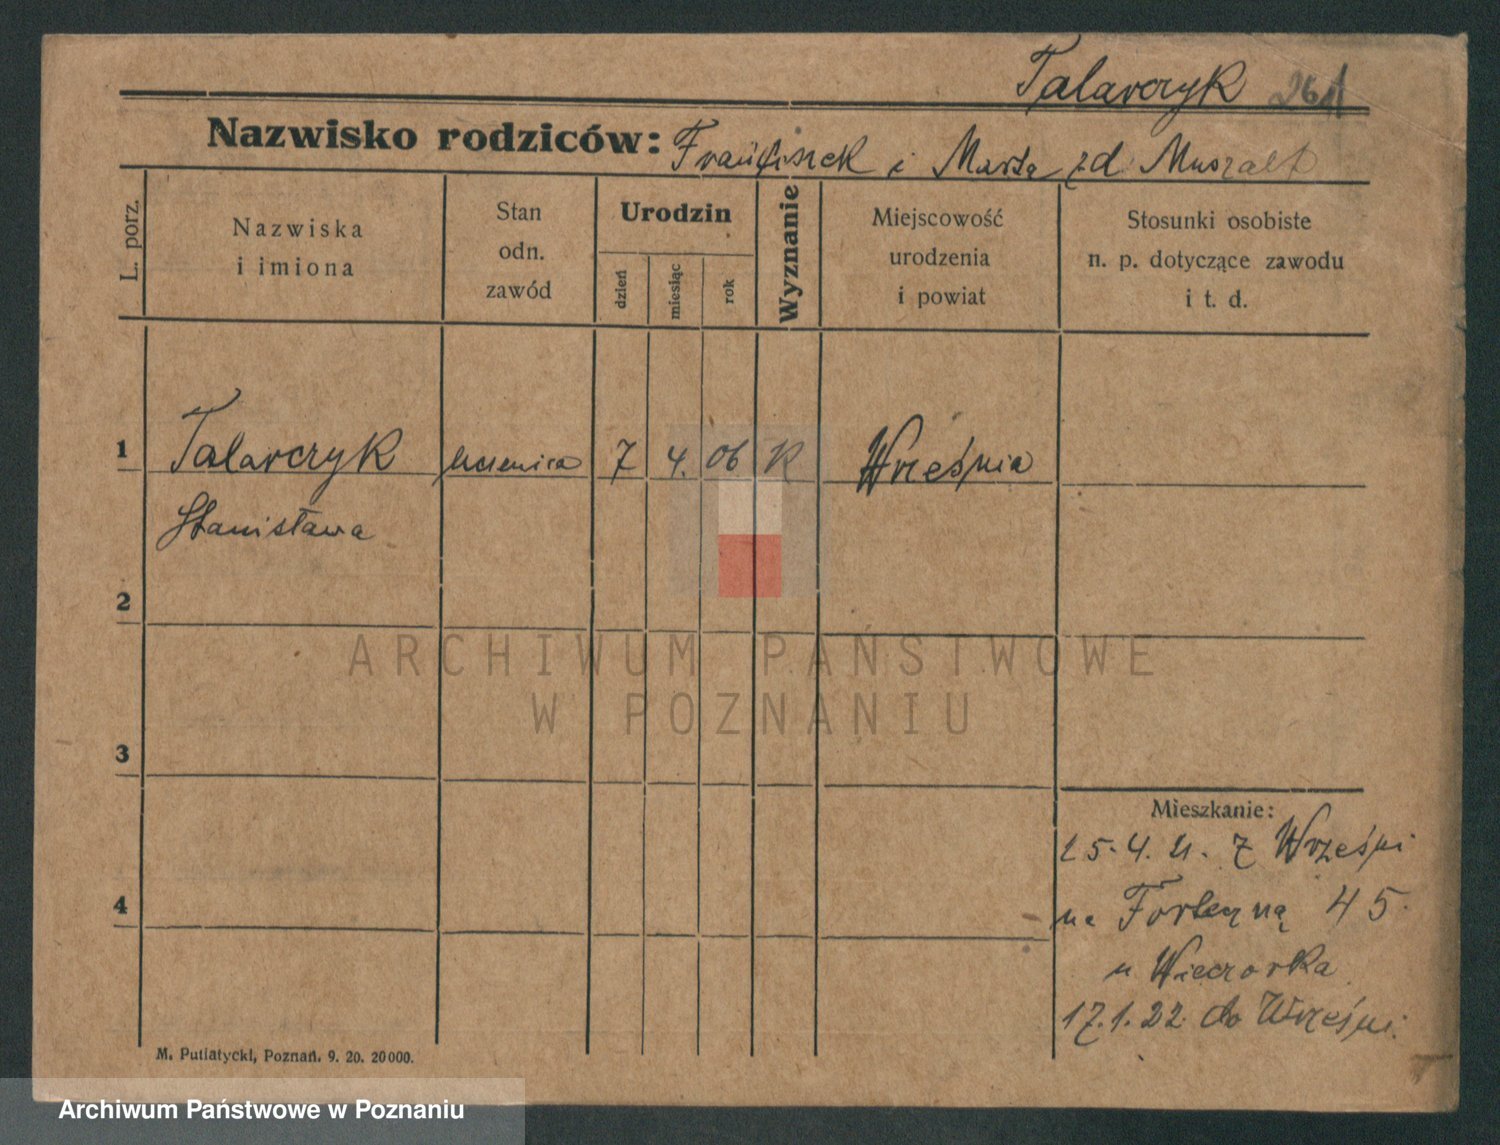 Talarczyk 261
Nazwisko rodziców: Franciszek i Marta zd Muszalt
L. porz.
Nazwiska
i imiona
Stan
odn.
zawód
Urodzin
dzień
miesiąc
rok
Wyznanie
Miejscowość
urodzenia
i powiat
Stosunki osobiste
n. p. dotyczące zawodu
i t. d.
1 Talarczyk uczenica 7 4. 06 K Września
Stanisława
2
ARCHIWUM PAŃSTWOWE
W POZNANIU
3
Mieszkanie:
25.4.21. z Wrześni
4 na Forteczną 45.
u Wieczorka
17.1.22. do Wrześni.
M. Putiatycki, Poznań. 9. 20. 20000.
Archiwum Państwowe w Poznaniu